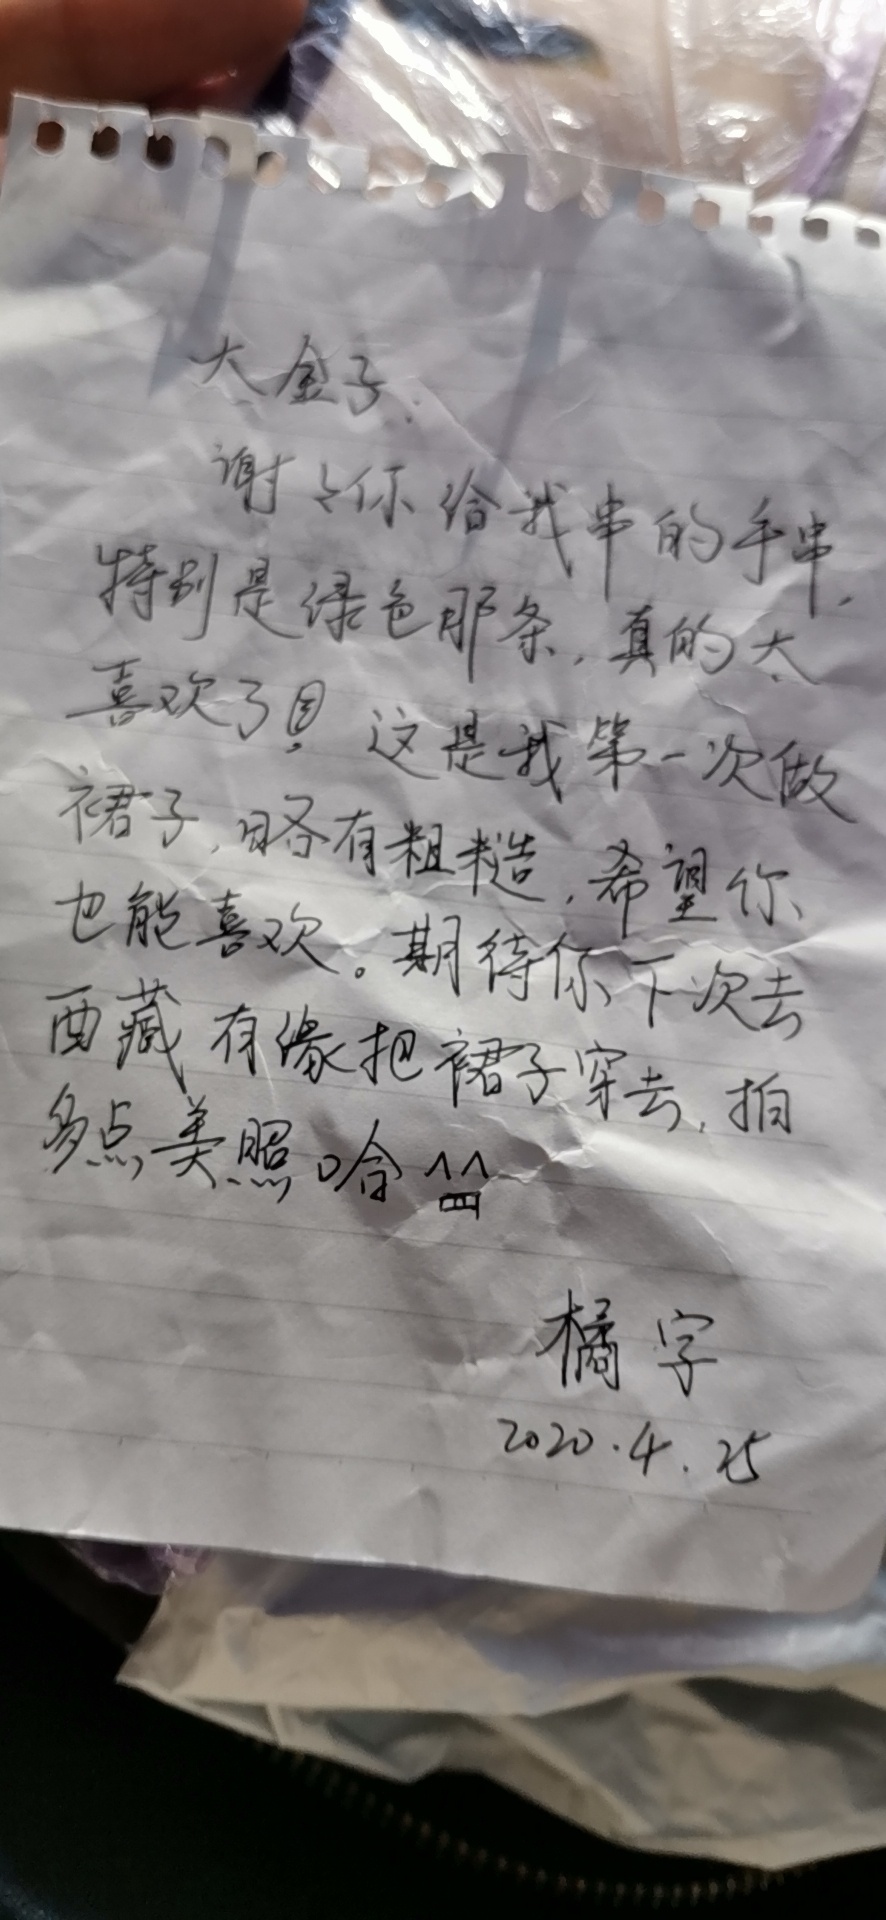 大金子：
谢谢你给我串的手串，
特别是绿色那条，真的太
喜欢了！这是我第一次做
裙子，略有粗糙，希望你
也能喜欢。期待你下次去
西藏有缘把裙子穿去，拍
多点美照哈^^
橘字
2020.4.25